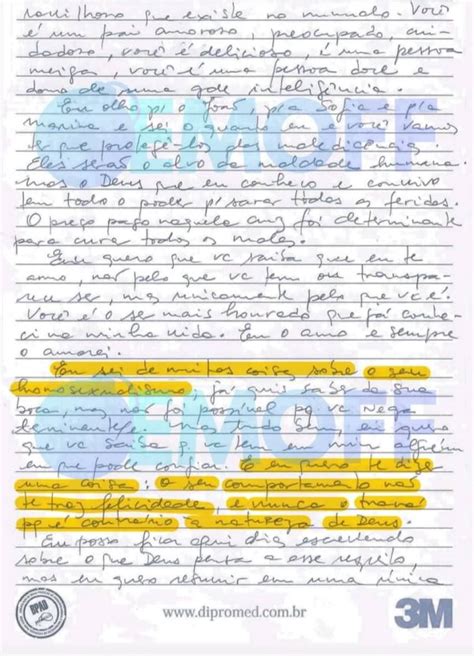 que existe no mundo. Você
é um pai amoroso, preocupado, cui-
dadoso, você é delicioso, é uma pessoa
meiga, você é uma pessoa doce e
dona de uma gde inteligência.
Eu olho p/ João, p/a Sofia e p/a
e sei o quanto eu e você vamos
ter que protegê-los das maledicências.
Eles serão o alvo da maldade humana.
mas o Deus que eu conheço e convivo
tem todo o poder p/ sarar todas as feridas.
O preço pago naquela cruz foi determinante
para curar todos os males.
Eu quero que vc saiba que eu te
amo, não pelo que vc tem ou transpa-
rece ser, mas unicamente pelo que vc é.
Você é o ser mais honrado que já conhe-
ci na minha vida. Eu o amo e sempre
o amarei.
Eu sei de muitas coisas sobre o seu
homossexualismo, já quis saber da sua
boca, mas não foi possível pq vc nega
Mas tudo bem, eu quero
que vc saiba q vc tem em mim alguém
em que pode confiar. E eu quero te dizer
uma coisa: o seu comportamento não
te traz felicidade, e nunca o trará
pq é contrário à natureza de Deus.
Eu posso ficar aqui dias escrevendo
sobre o que Deus pensa a esse respeito,
mas eu quero resumir em uma única
EMOFF
EMOFF
www.dipromed.com.br
3M